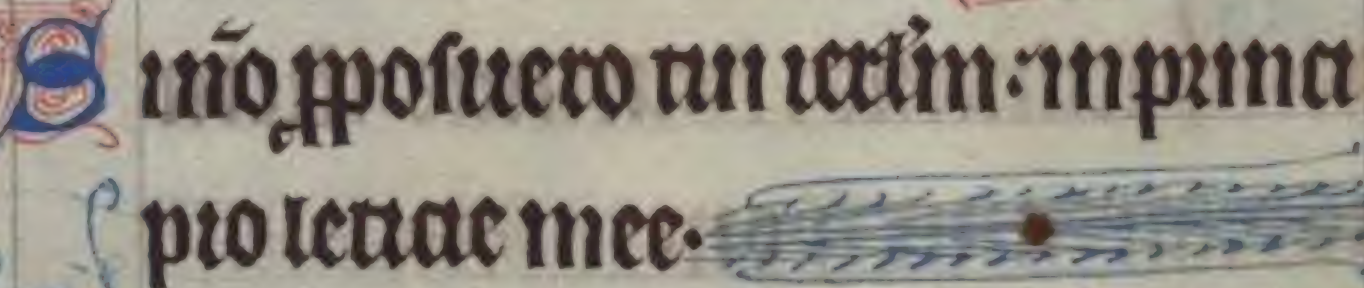 Si nõ ꝓposuero tui ierlm̃: in princi
pio leticie mee.